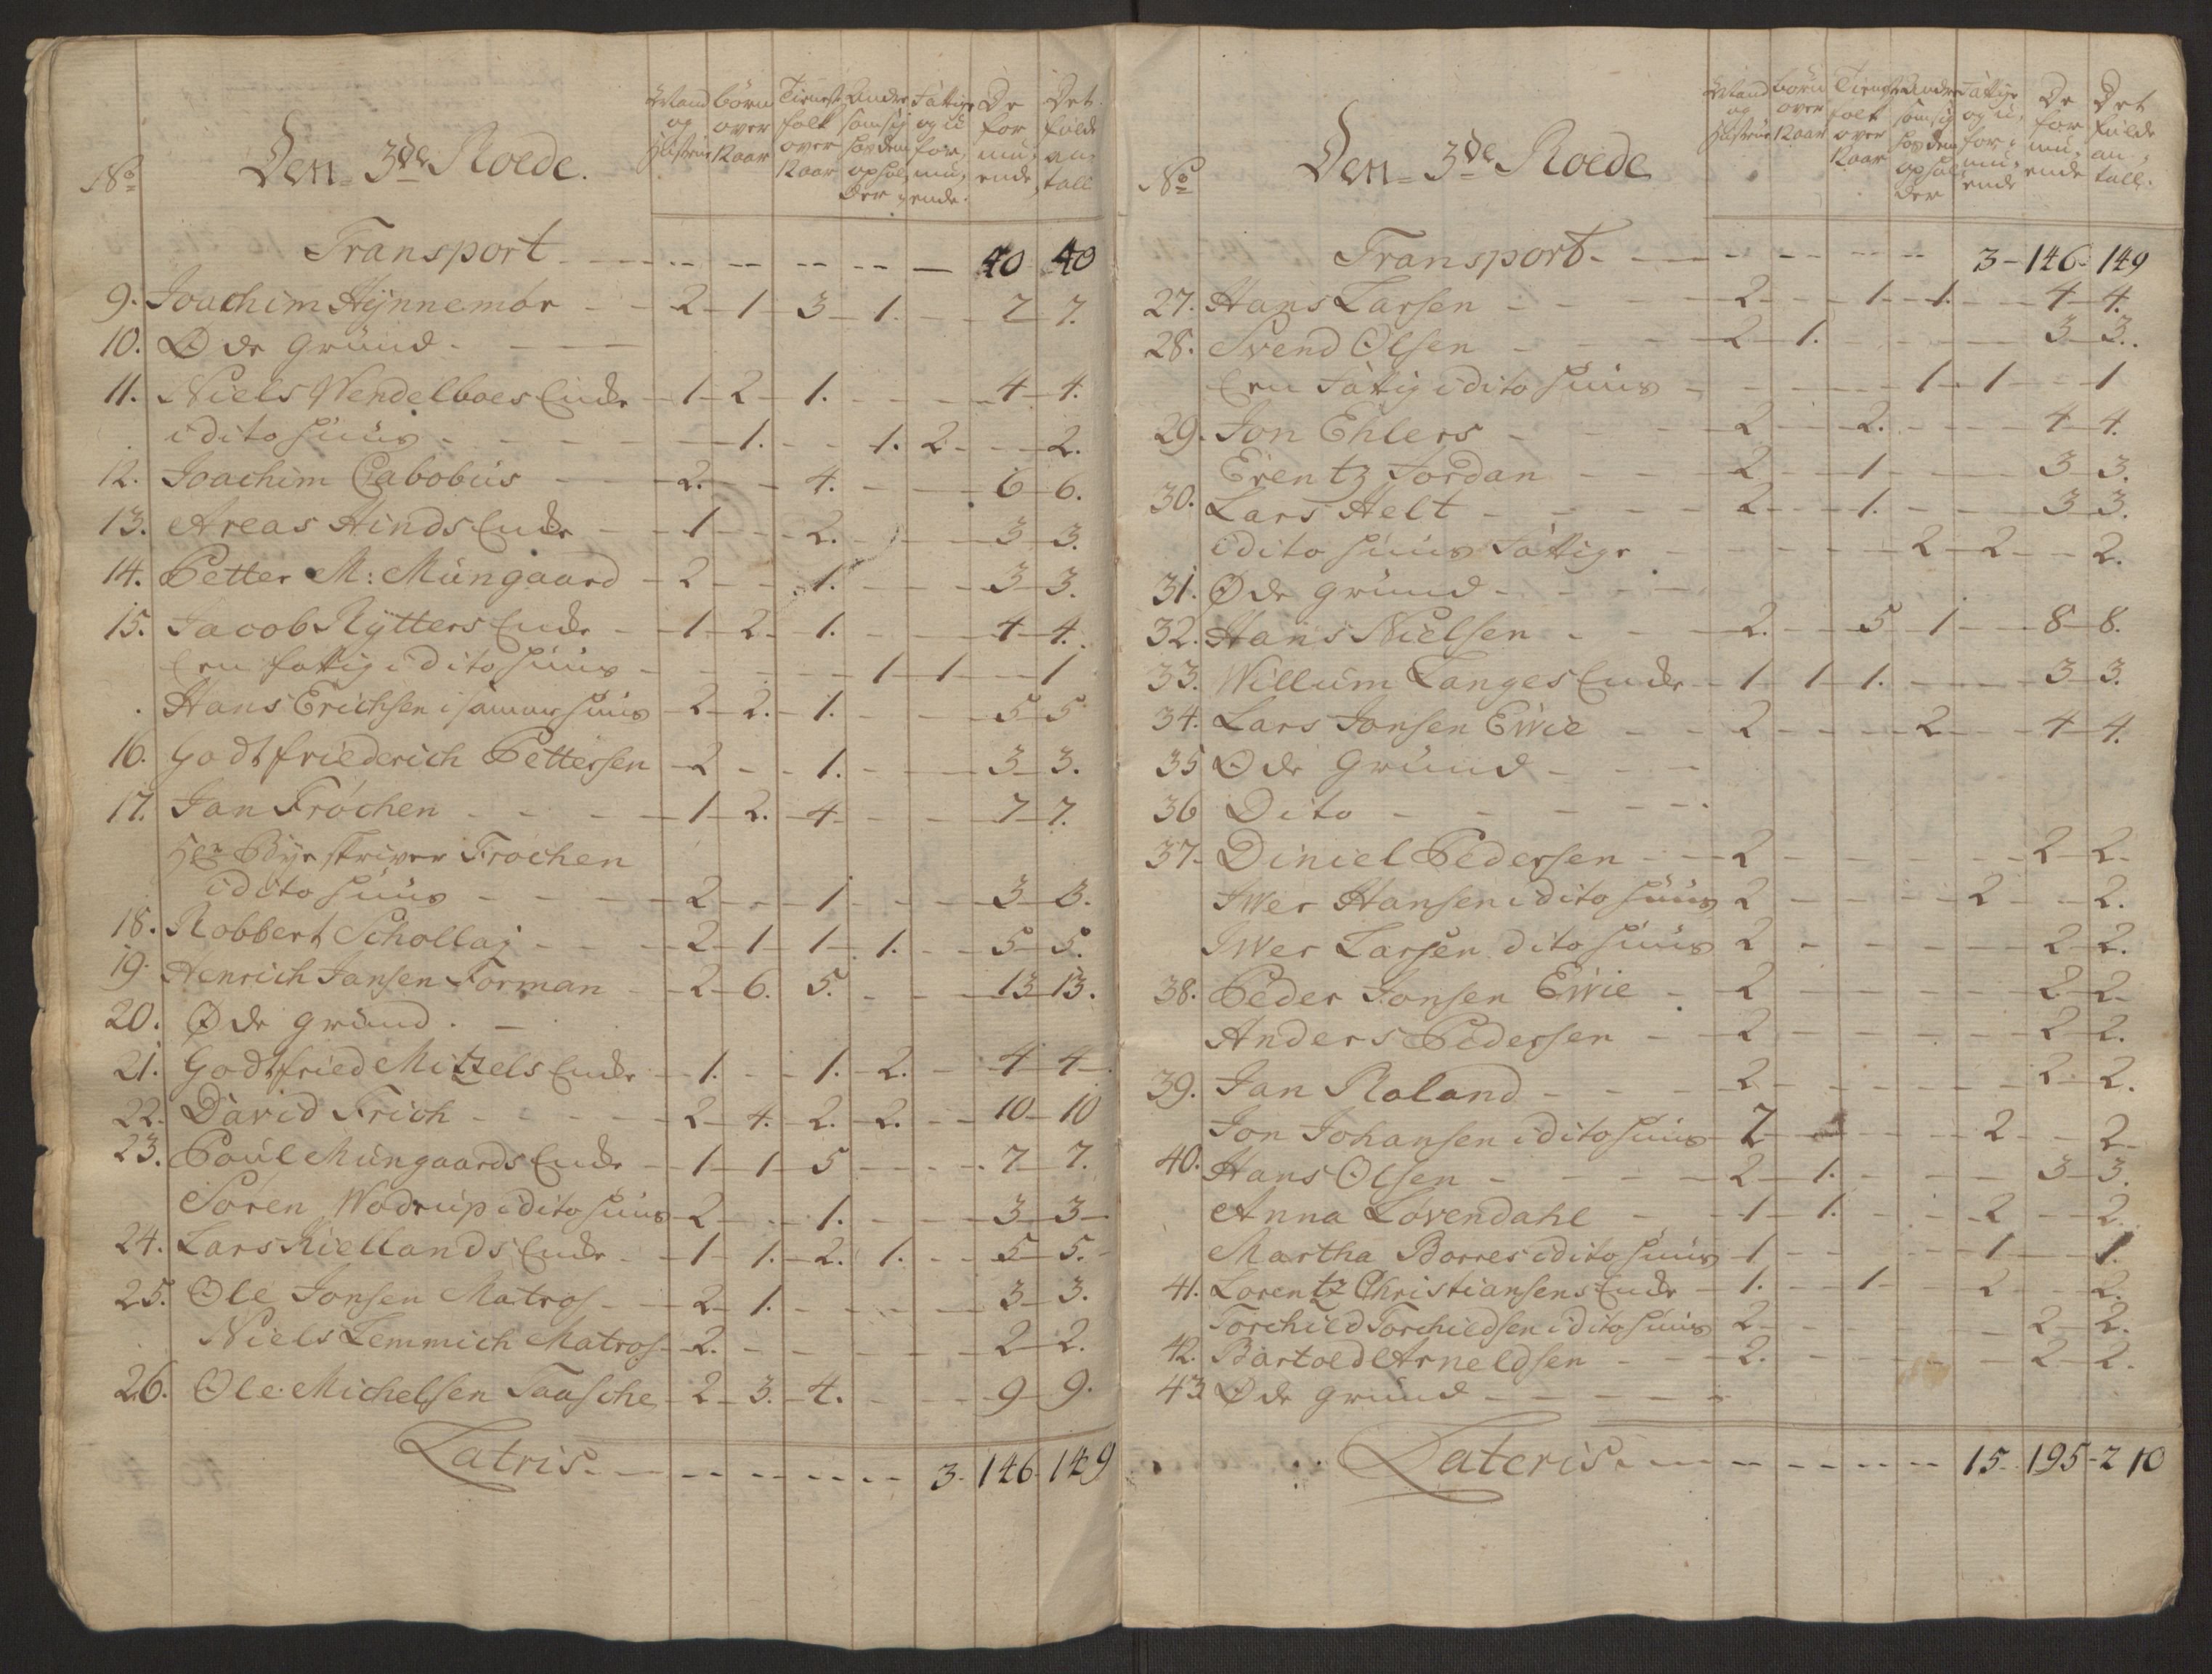 No
Den 3de Roede.
Mand og Hustrue
børn over 12 aar
Tienest folk over 12 aar
Andre som sig hos dem opholder
Fattige og uformuende
De formuende
Det fulde antall
Transport - - - - - 40 40
9. Joachim Hÿnnemør - 2 - 1 - 3 - 1. - - 7 - 7.
10. Øde Grund - - -
11. Niels Wendelboes Encke - 1 - 2 - 1. - - 4 - 4.
i dito Huus - - 1. - - 1. 2. - - 2.
12. Joachim Cabobus - 2. - - 4. - - 6 - 6.
13. Areas Hinds Encke - 1 - - 2. - - 3 - 3.
14. Petter M: Mungaard - 2 - - 1. - - 3 - 3.
15. Jacob Rÿtters Encke - 1 - 2. - 1. - - 4 - 4.
Een fattig i dito Huus - - - - 1 - 1 - - 1
Hans Erichsen i samme Huus - 2 - 2. - 1. - - 5 - 5
16. Godtfriederich Pettersen - 2 - - 1. - - 3 - 3.
17. Jan Frøchen - - 1 - 2. - 4 - - 7 - 7.
Hr Bye skriver Frochen
i dito Huus - - 2 - - 1 - - 3 - 3.
18. Robbert Schollaj - - 2 - 1 - 1 - 1. - - 5 - 5.
19. Henrich Jansen Forman - 2 - 6. 5. - - 13 - 13.
20. Øde Grund. -
21. Godtfried Mitzels Encke - 1. - - 1. - 2. - 4 - 4
22. David Frich - - 2 - 4. - 2. - 2. - - 10 - 10
23. Poul Mungaards Encke - 1 - 1 - 5 - - - 7 - 7.
Soren Wodrup i dito Huus - 2 - - 1. - - 3 - 3
24. Lars Kiellands Encke - 1 - 1. - 2. - 1. - - 5 - 5.
25. Ole Jonsen Matros - 2 - 1. - - - 3 - 3.
Niels Lemmich Matros - 2. - - - - 2 - 2.
26. Ole Michelsen Taasche - 2 - 3. - 4. - - 9 - 9.
Latris - - - - - 3. 146. 149
No
Den 3de Roede
Mand og Hustrue
børn over 12 aar
Tienest folk over 12 aar
Andre som sig hos dem opholder
Fattige og uformuende
De formuende
Det fulde antall.
Transport - - - - - 3 - 146 - 149
27. Hans Larsen - - 2 - - 1 - 1. - - 4 - 4.
28. Svend Olsen - - 2 - 1. - - - 3 - 3.
Een Fattig i dito Huus - - - - 1 - 1 - - 1
29. Jon Ehlers - - 2 - - 2. - - 4 - 4.
Erentz Jordan - - 2 - - 1 - - 3 - 3.
30. Lars Helt - - 2 - - 1. - - 3 - 3.
i dito Huus Fattige - - - - 2 - 2 - - 2.
31. Øde Grund - - -
32. Hans Nielsen - - 2. - - 5 1 - - 8 - 8.
33. Willum Langes Encke - 1 1 - 1. - - 3 - 3.
34. Lars Jonsen Ewie - - 2 - - - 2 - - 4 - 4.
35 Øde Grund - - -
36 Dito - - - -
37. Diniel Pedersen - - 2 - - - - 2 - 2.
Iwer Hansen i dito Huus 2 - - - 2 - - 2.
Iwer Larsen dito Huus 2 - - - - 2 - 2.
38. Peder Jonsen Ewie - 2 - - - - 2 - 2.
Anders Pedersen - - 2 - - - - 2 - 2.
39. Jan Roland - - 2 - - - - 2 - 2.
Jon Johansen i dito Huus - 2 - - - 2 - - 2
40. Hans Olsen - - 2 - 1. - - - 3 - 3.
Anna Lovendahl - - 1 - 1. - - 2 - - 2.
Martha Borres i dito Huus - 1 - - - 1 - - 1.
41. Lorentz Christiansens Encke - 1. - - 1 - - 2 - - 2.
Torchild Torchildsen i dito Huus 2 - - - - 2 - 2.
42. Bartold Arneldsen - - 2. - - - - 2 - 2.
43 Øde Grund - - - -
Lateris - - - - - 15 - 195 - 210